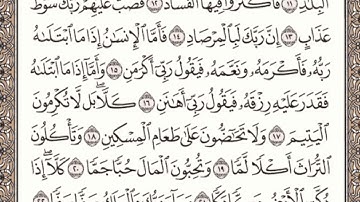 ٱلۡبِلَٰدِ ١١ فَأَكۡثَرُواْ فِيهَا ٱلۡفَسَادَ ١٢ فَصَبَّ عَلَيۡهِمۡ رَبُّكَ سَوۡطَ
عَذَابٍ ١٣ إِنَّ رَبَّكَ لَبِٱلۡمِرۡصَادِ ١٤ فَأَمَّا ٱلۡإِنسَٰنُ إِذَا مَا ٱبۡتَلَىٰهُ
رَبُّهُۥ فَأَكۡرَمَهُۥ وَنَعَّمَهُۥ فَيَقُولُ رَبِّيٓ أَكۡرَمَنِ ١٥ وَأَمَّآ إِذَا مَا ٱبۡتَلَىٰهُ
فَقَدَرَ عَلَيۡهِ رِزۡقَهُۥ فَيَقُولُ رَبِّيٓ أَهَٰنَنِ ١٦ كَلَّاۖ بَل لَّا تُكۡرِمُونَ
ٱلۡيَتِيمَ ١٧ وَلَا تَحَٰٓضُّونَ عَلَىٰ طَعَامِ ٱلۡمِسۡكِينِ ١٨ وَتَأۡكُلُونَ
ٱلتُّرَاثَ أَكۡلٗا لَّمّٗا ١٩ وَتُحِبُّونَ ٱلۡمَالَ حُبّٗا جَمّٗا ٢٠ كَلَّآۖ إِذَا